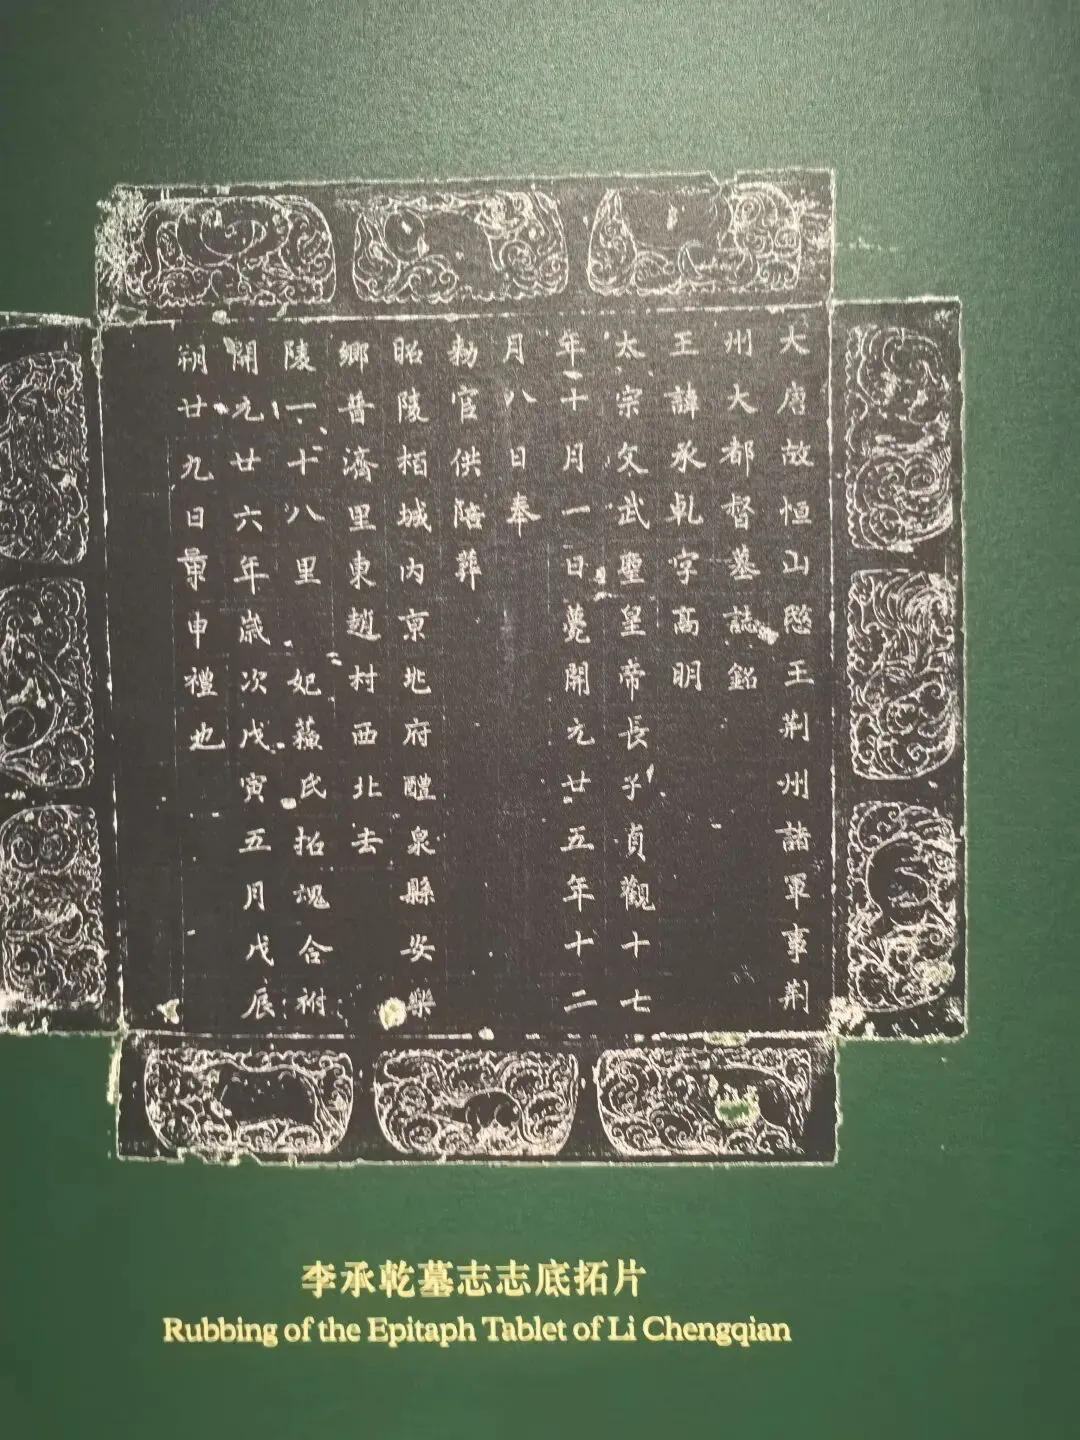 大唐故恒山愍王荆州諸軍事荆
州大都督墓誌銘
王諱承乹字高明
太宗文武聖皇帝長子貞觀十七
年十月一日薨開元廿五年十二
月八日奉
勅官供陪葬
昭陵栢城内京兆府醴泉縣安樂
鄉普濟里東趙村西北去
陵一十八里 妃蘓氏招魂合祔
開元廿六年歲次戊寅五月戊辰
朔廿九日景申禮也
李承乾墓志志底拓片
Rubbing of the Epitaph Tablet of Li Chengqian